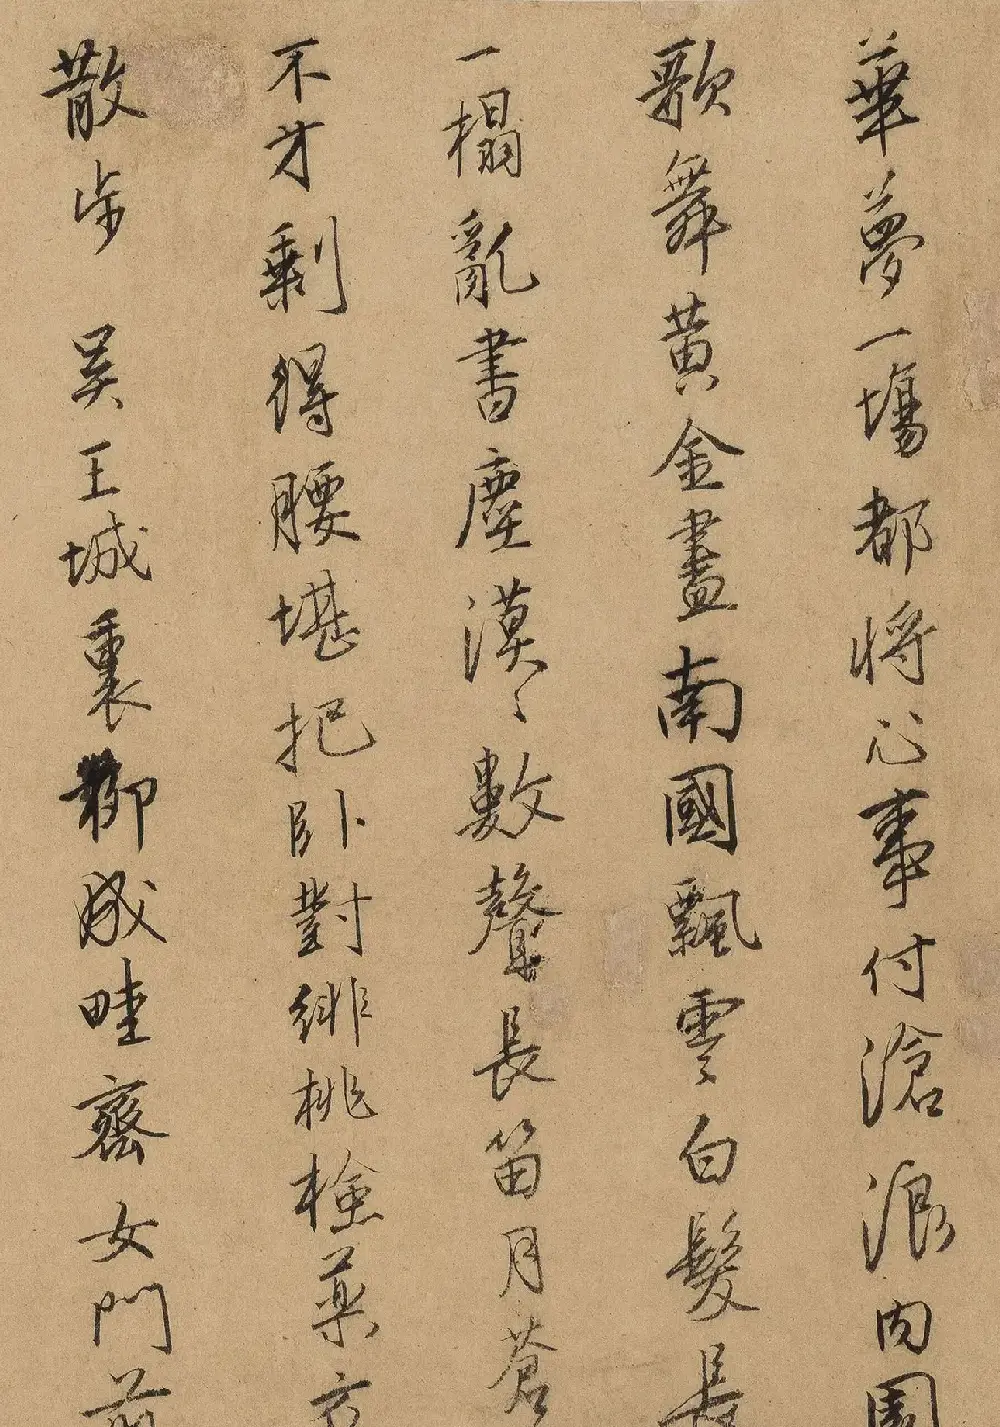 華夢一場都將心事付滄浪内園
歌舞黃金盡南國飄零白髮長
一榻亂書塵漠〻數聲長笛月蒼
不才剩得腰堪把卧對緋桃檢藥方
散步 吴王城裏柳成畦齊女門前